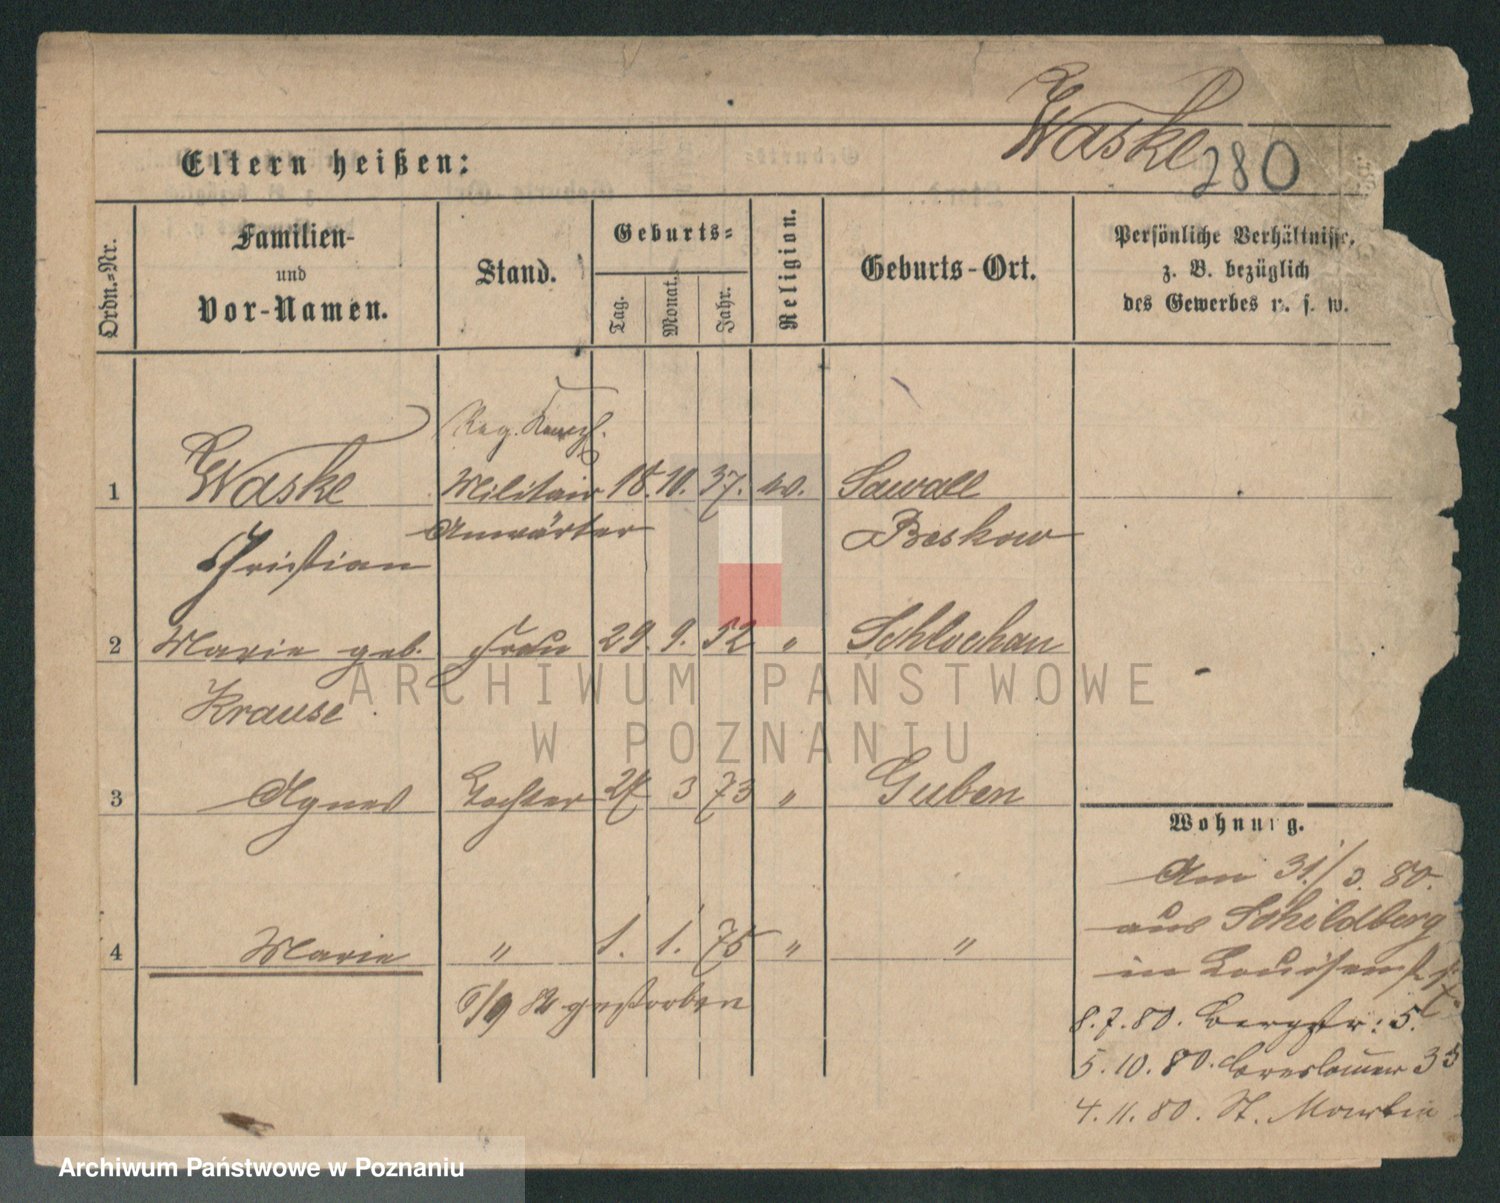 Waske
280
Eltern heißen:
Ordn.-Nr.
Familien-
und
Vor-Namen.
Stand.
Geburts-
Tag.
Monat.
Jahr.
Religion.
Geburts-Ort.
Persönliche Verhältnisse,
z. B. bezüglich
des Gewerbes u. s. w.
Reg.
1 Waske Militair 18. 10. 37. ev. Sawall
Christian Anwärter Beskow
2 Marie geb. Frau 29. 9. 52 " Schlochau
Krause
3 Agnes Tochter 3 73 " Guben
4 Marie " 1. 1. 75 " "
6/9 gestorben
Wohnung.
Am 31./3. 80.
aus Schildberg
in Louisenst
8.7.80. Bergstr: 5.
5.10.80. Breslauer 33
4.11.80. St. Martin
ARCHIWUM PAŃSTWOWE
W POZNANIU
Archiwum Państwowe w Poznaniu